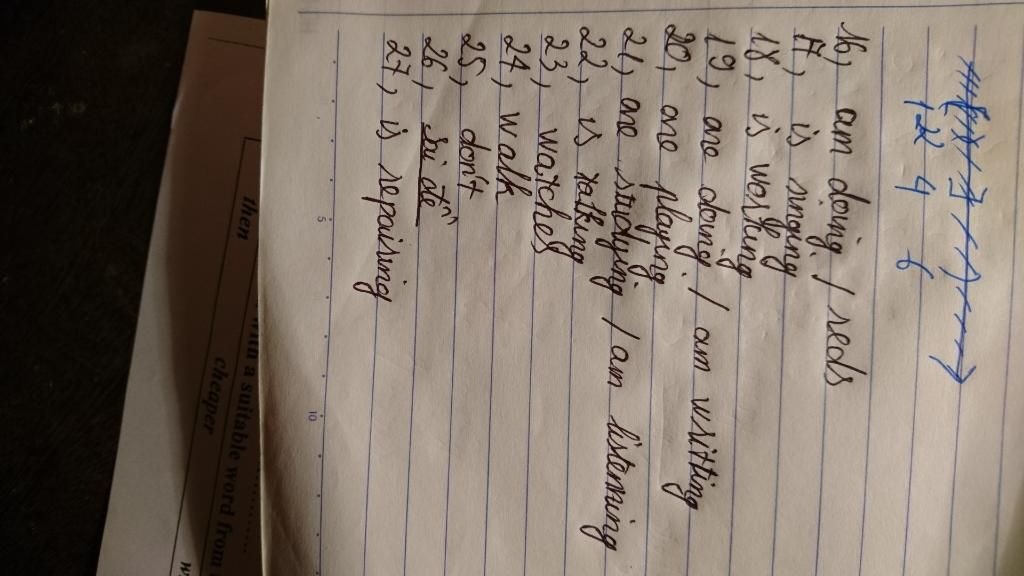 12 4 6
16, am doing / reeds
17, is singing
18, is working
19, are doing / am writting
20, are playing
21, are studying / am listening
22, is talking
23, watches
24, walk
25, don't
26,
27, is repairing
5
10
with a suitable word from
then
cheaper